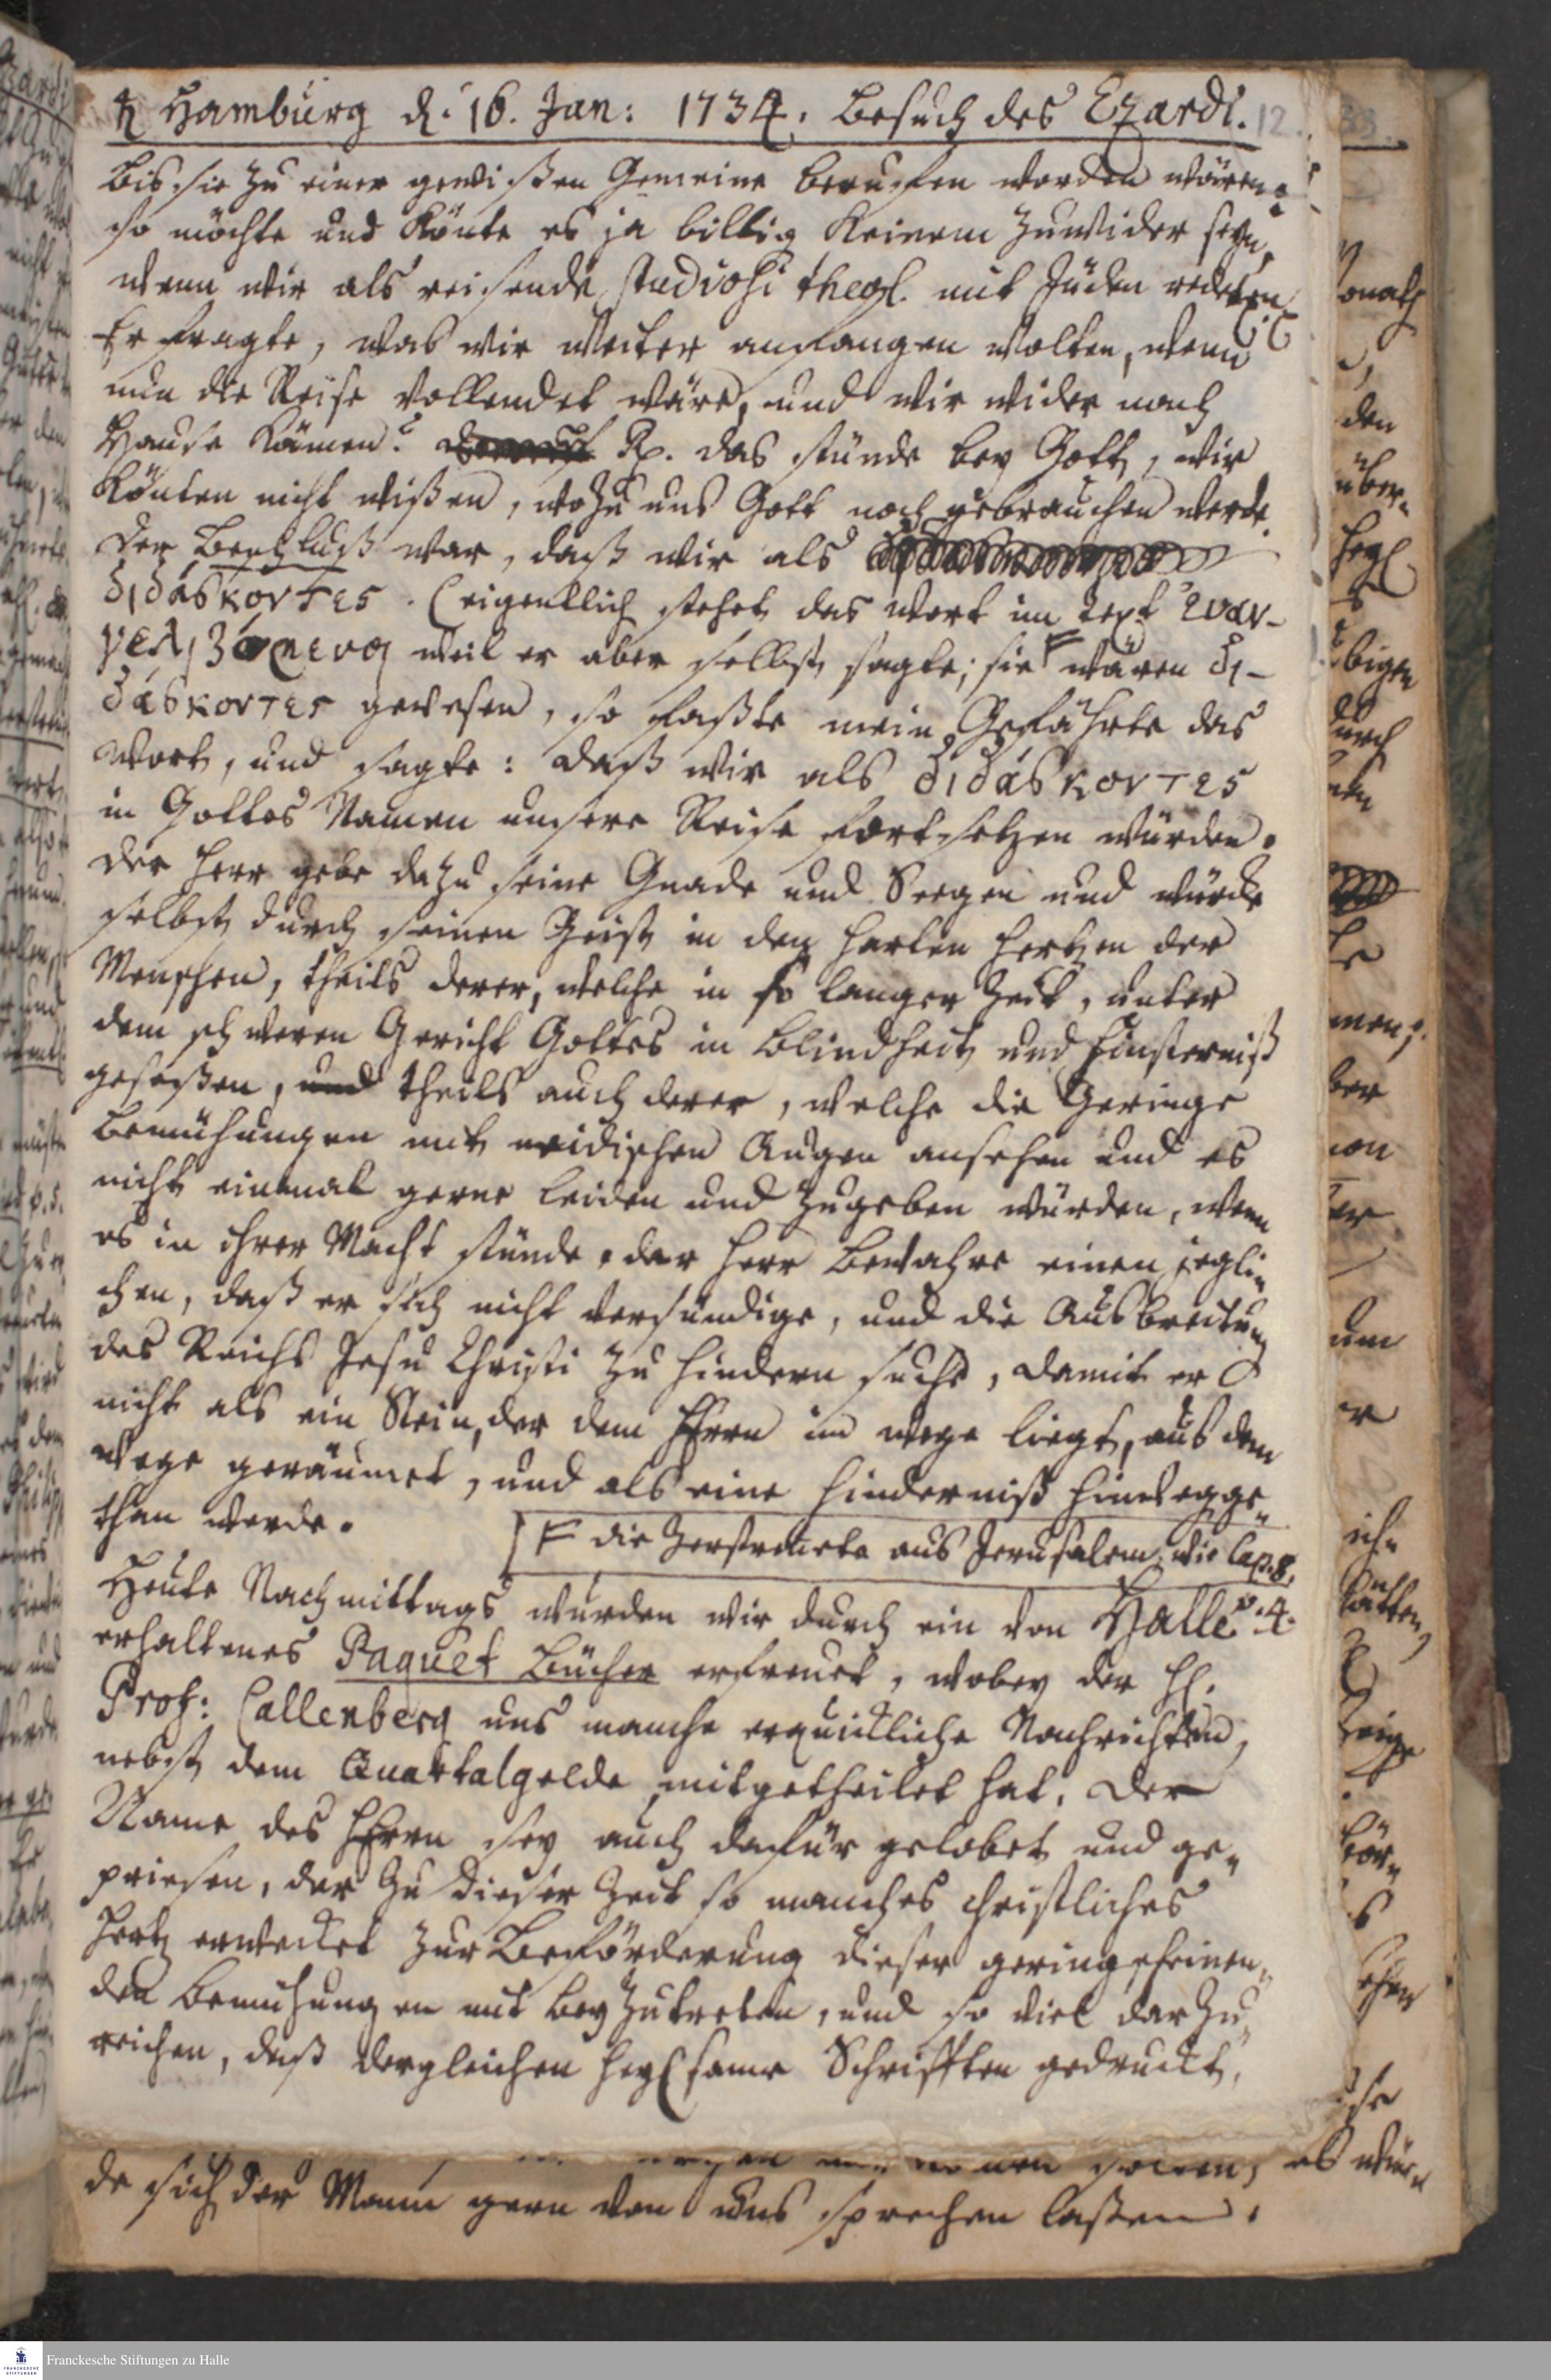 ♄ Hamburg d. 16. Jan: 1734. Besuch des Ezardi. 12.
bis sie zu einer gewißen Gemeine beruffen worden wären:
so möchte und könte es ja billig keinem zuwider seyn,
wenn wir als reisende studiosi theol. mit Juden redeten
Er fragte, was wir weiter anfangen wolten, wenn
nun die Reise vollendet wäre, und wir wider nach
Hause kämen? Rx. das stünde bey Gott, wir
könten nicht wißen, wozu uns Gott noch gebrauchen werde.
Der Beschluß war, daß wir als
διδάσκοντες. (eigentlich stehet das Wort im Text ευαγ-
γελιζόμενοι weil er aber selbst sagte; sie F wären δι-
δάσκοντες gewesen, so faßte mein Gefährte das
Wort, und sagte: daß wir als διδάσκοντες
in Gottes Namen unsere Reise fortsetzen würden.
Der Herr gebe dazu seine Gnade und Seegen und würcke
selbst durch seinen Geist in den harten Hertzen der
Menschen, theils derer, welche in so langer Zeit, unter
dem schweren Gericht Gottes in Blindheit und Finsterniß
geseßen, und theils auch derer, welche die Geringe
Bemühungen mit neidischen Augen ansehen und es
nicht einmal gerne leiden und zugeben würden, wenn
es in ihrer Macht stünde. der Herr bewahre einen jegli-
chen, daß er sich nicht versündige, und die Ausbreitung
des Reichs Jesu Christi zu hindern suche, damit er
nicht als ein Stein, der dem HErrn im wege liegt, aus dem
Wege geräumet, und als eine Hinderniß hinweg ge-
than werde.
F die Zerstreuete aus Jerusalem, wie Cap. 8,
v. 4.
Heute Nachmittags wurden wir durch ein von Halle
erhaltenes Paquet Bücher erfreuet, wobey der H.
Prof: Callenberg uns manche erquickliche Nachrichten,
nebst dem Quartalgelde mitgetheilet hat. Der
Name des HErrn sey auch dafür gelobet und ge-
priesen, der zu dieser Zeit so manches christliches
Hertz erwecket zur Beförderung dieser gering scheinen-
den Bemühungen mit beyzutreten, und so viel darzu-
reichen, daß dergleichen heylsame Schrifften gedruckt,
es wür-
de sich der Mann gern von uns sprechen laßen.
Franckesche Stiftungen zu Halle